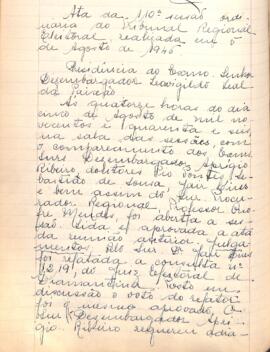 Ata da 110ª sessão ordi-
naria do Tribunal Regional
Eleitoral, realizada em 5
de Agosto de 1946
Presidência do Exmo. Senhor
Desembargador Leovigildo Leal
da Paixão
As quatorze horas do dia
cinco de Agosto de mil no-
vecentos e quarenta e seis,
na sala das sessões, com
o comparecimento dos Exmos
Snrs Desembargador Aprigio
Ribeiro, doutores Pio Pontes, Se-
bastião de Sousa, Jair Lins
e bem assim do Snr. Procu-
rador Regional, Professor Ono-
fre Mendes, foi aberta a ses-
são. Lida e aprovada a ata
da reunião anterior. Julga-
mentos: Pelo Snr. Dr. Jair Lins
foi relatada a consulta nº
1219, do Juiz Eleitoral de
Diamantina. Posto em
discussão o voto do relator
foi o mesmo aprovado. O
Desembargador Apri-
gio Ribeiro requereu adia-